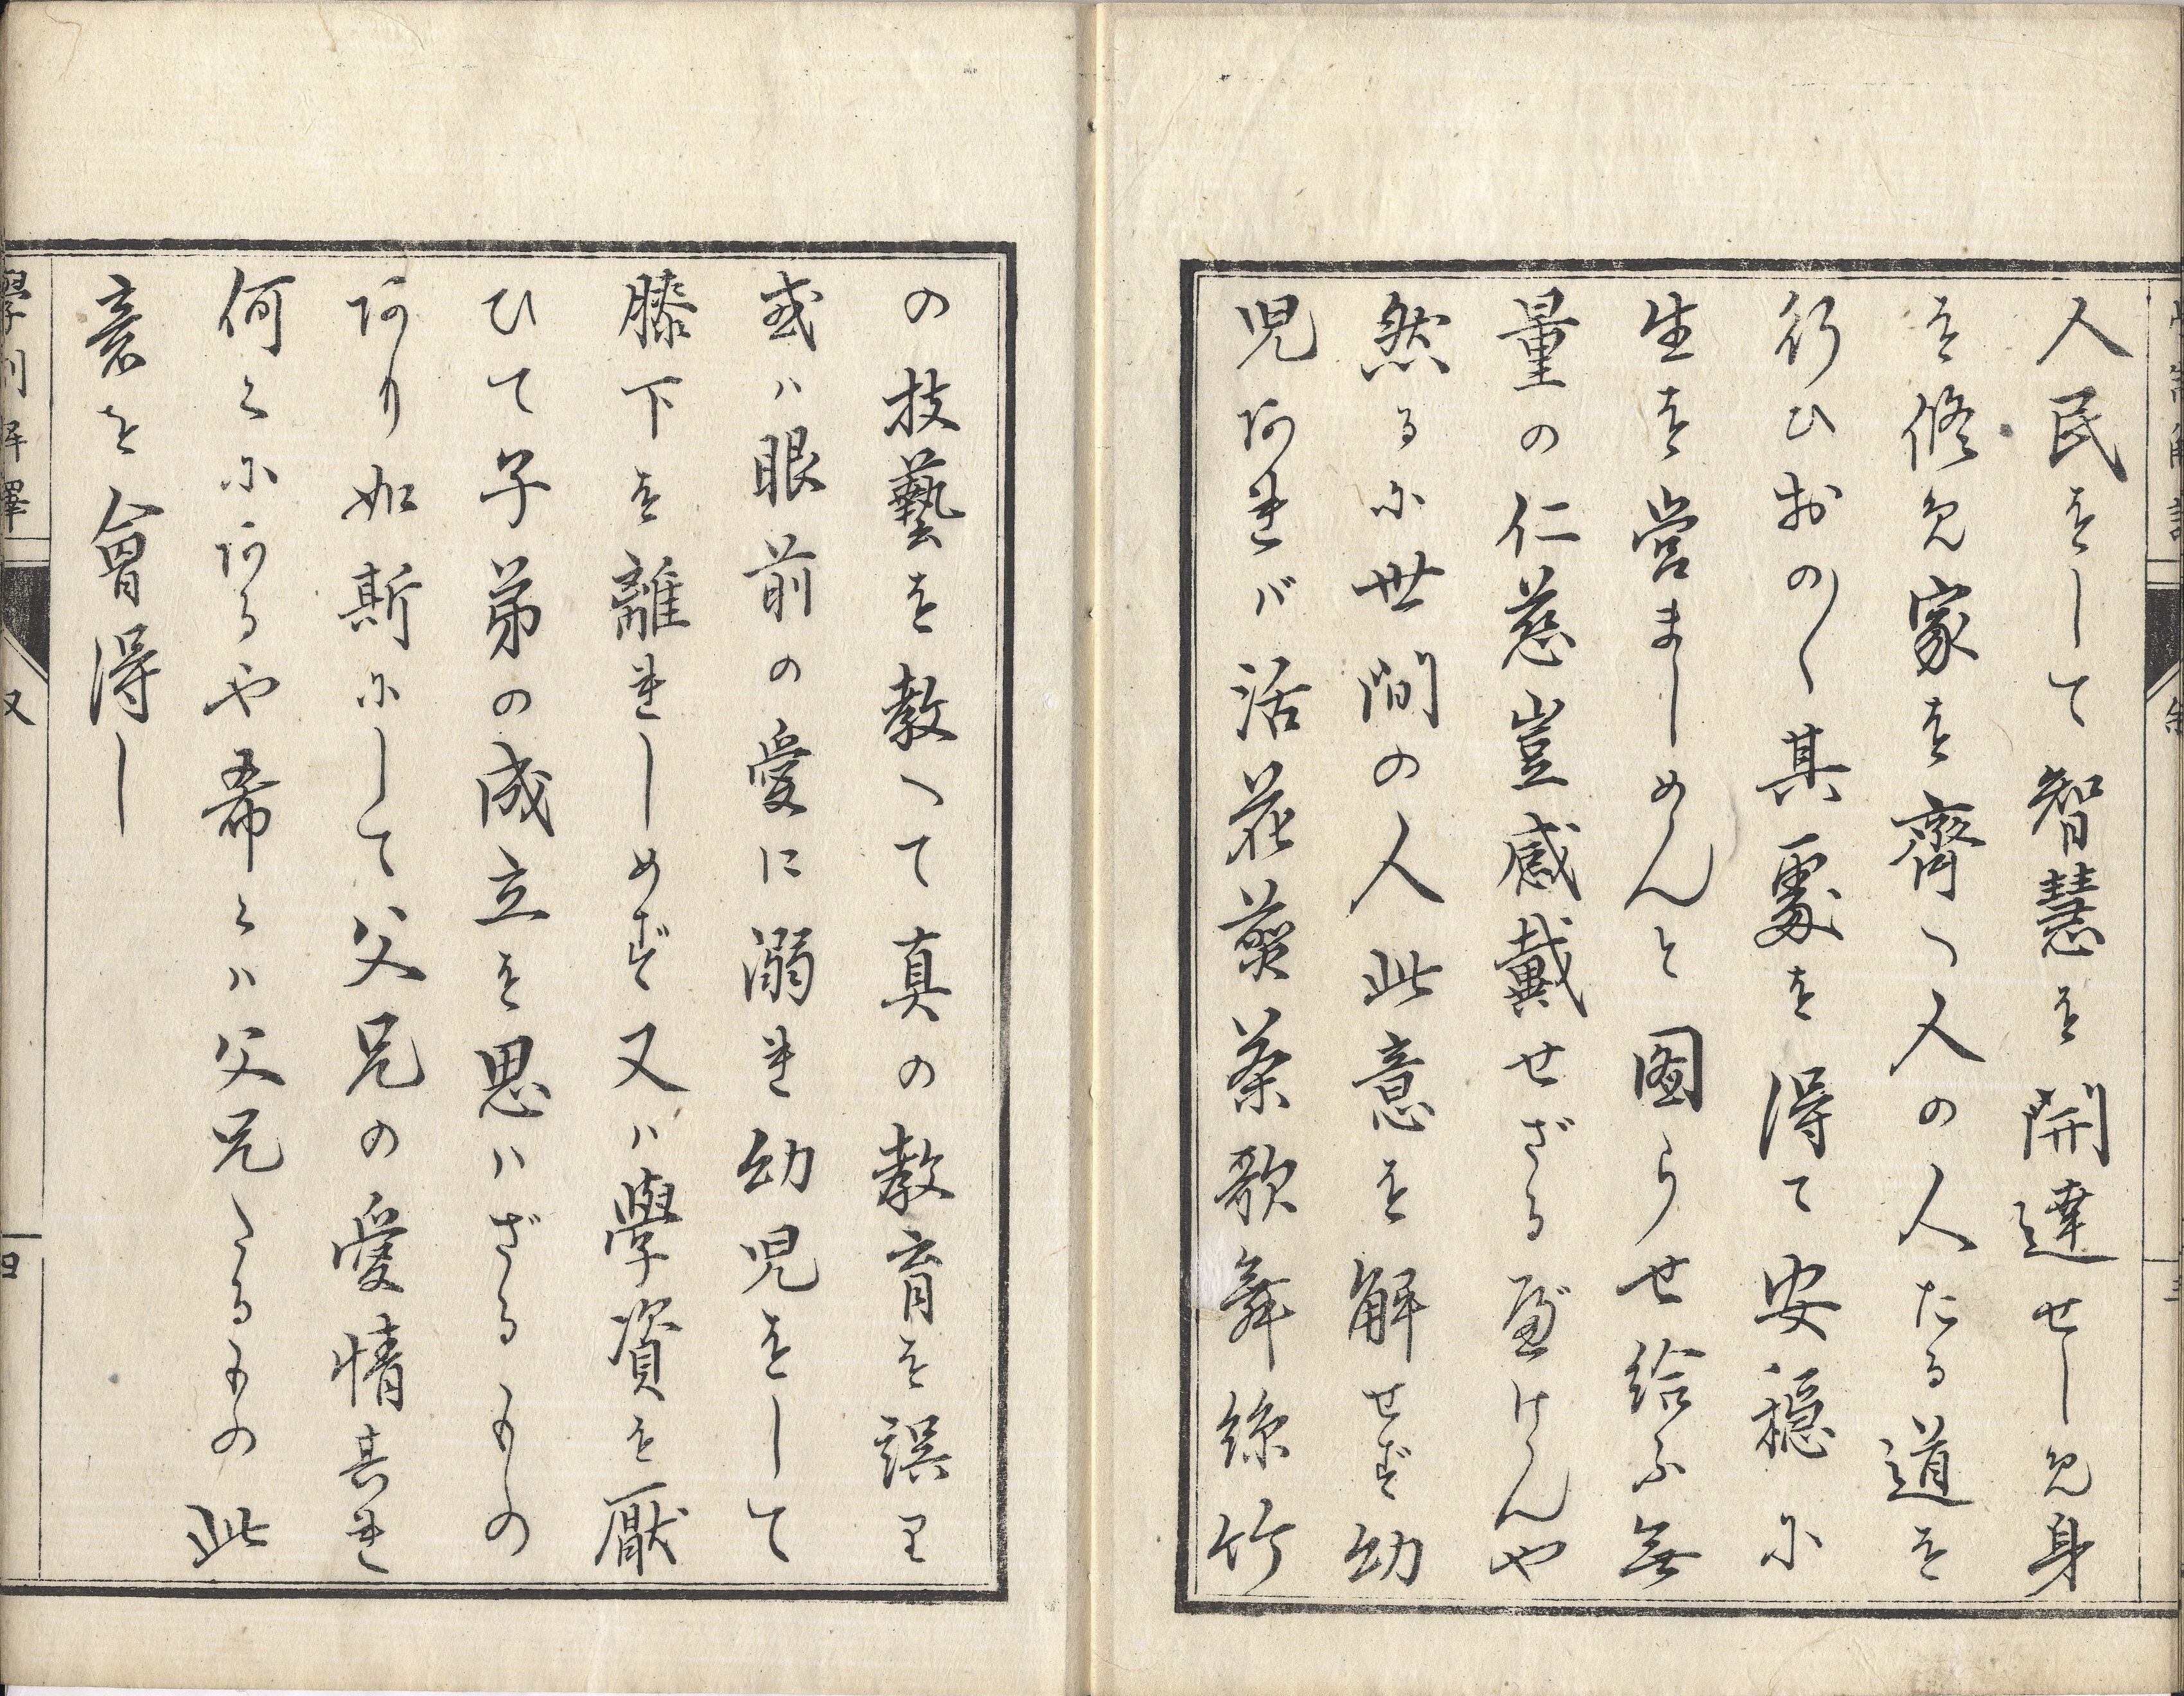 人民をして智慧を開達せしめ身
を修め家を齊へ人の人たる道を
行ひおの〳〵其處を得て安穏に
生を営ましめんと図らせ給ふ無
量の仁慈豈感戴せざるべけんや
然るに世間の人此意を解せず幼
児あれバ活花煎茶歌舞絲竹
の技藝を教へて真の教育を誤り
或ハ眼前の愛に溺れ幼児をして
膝下を離れしめず又ハ學資を厭
ひて子弟の成立を思ハざるもの
あり如斯にして父兄の愛情其れ
何くにあるや希くハ父兄たるもの此
意を會得し
學制解譯
四